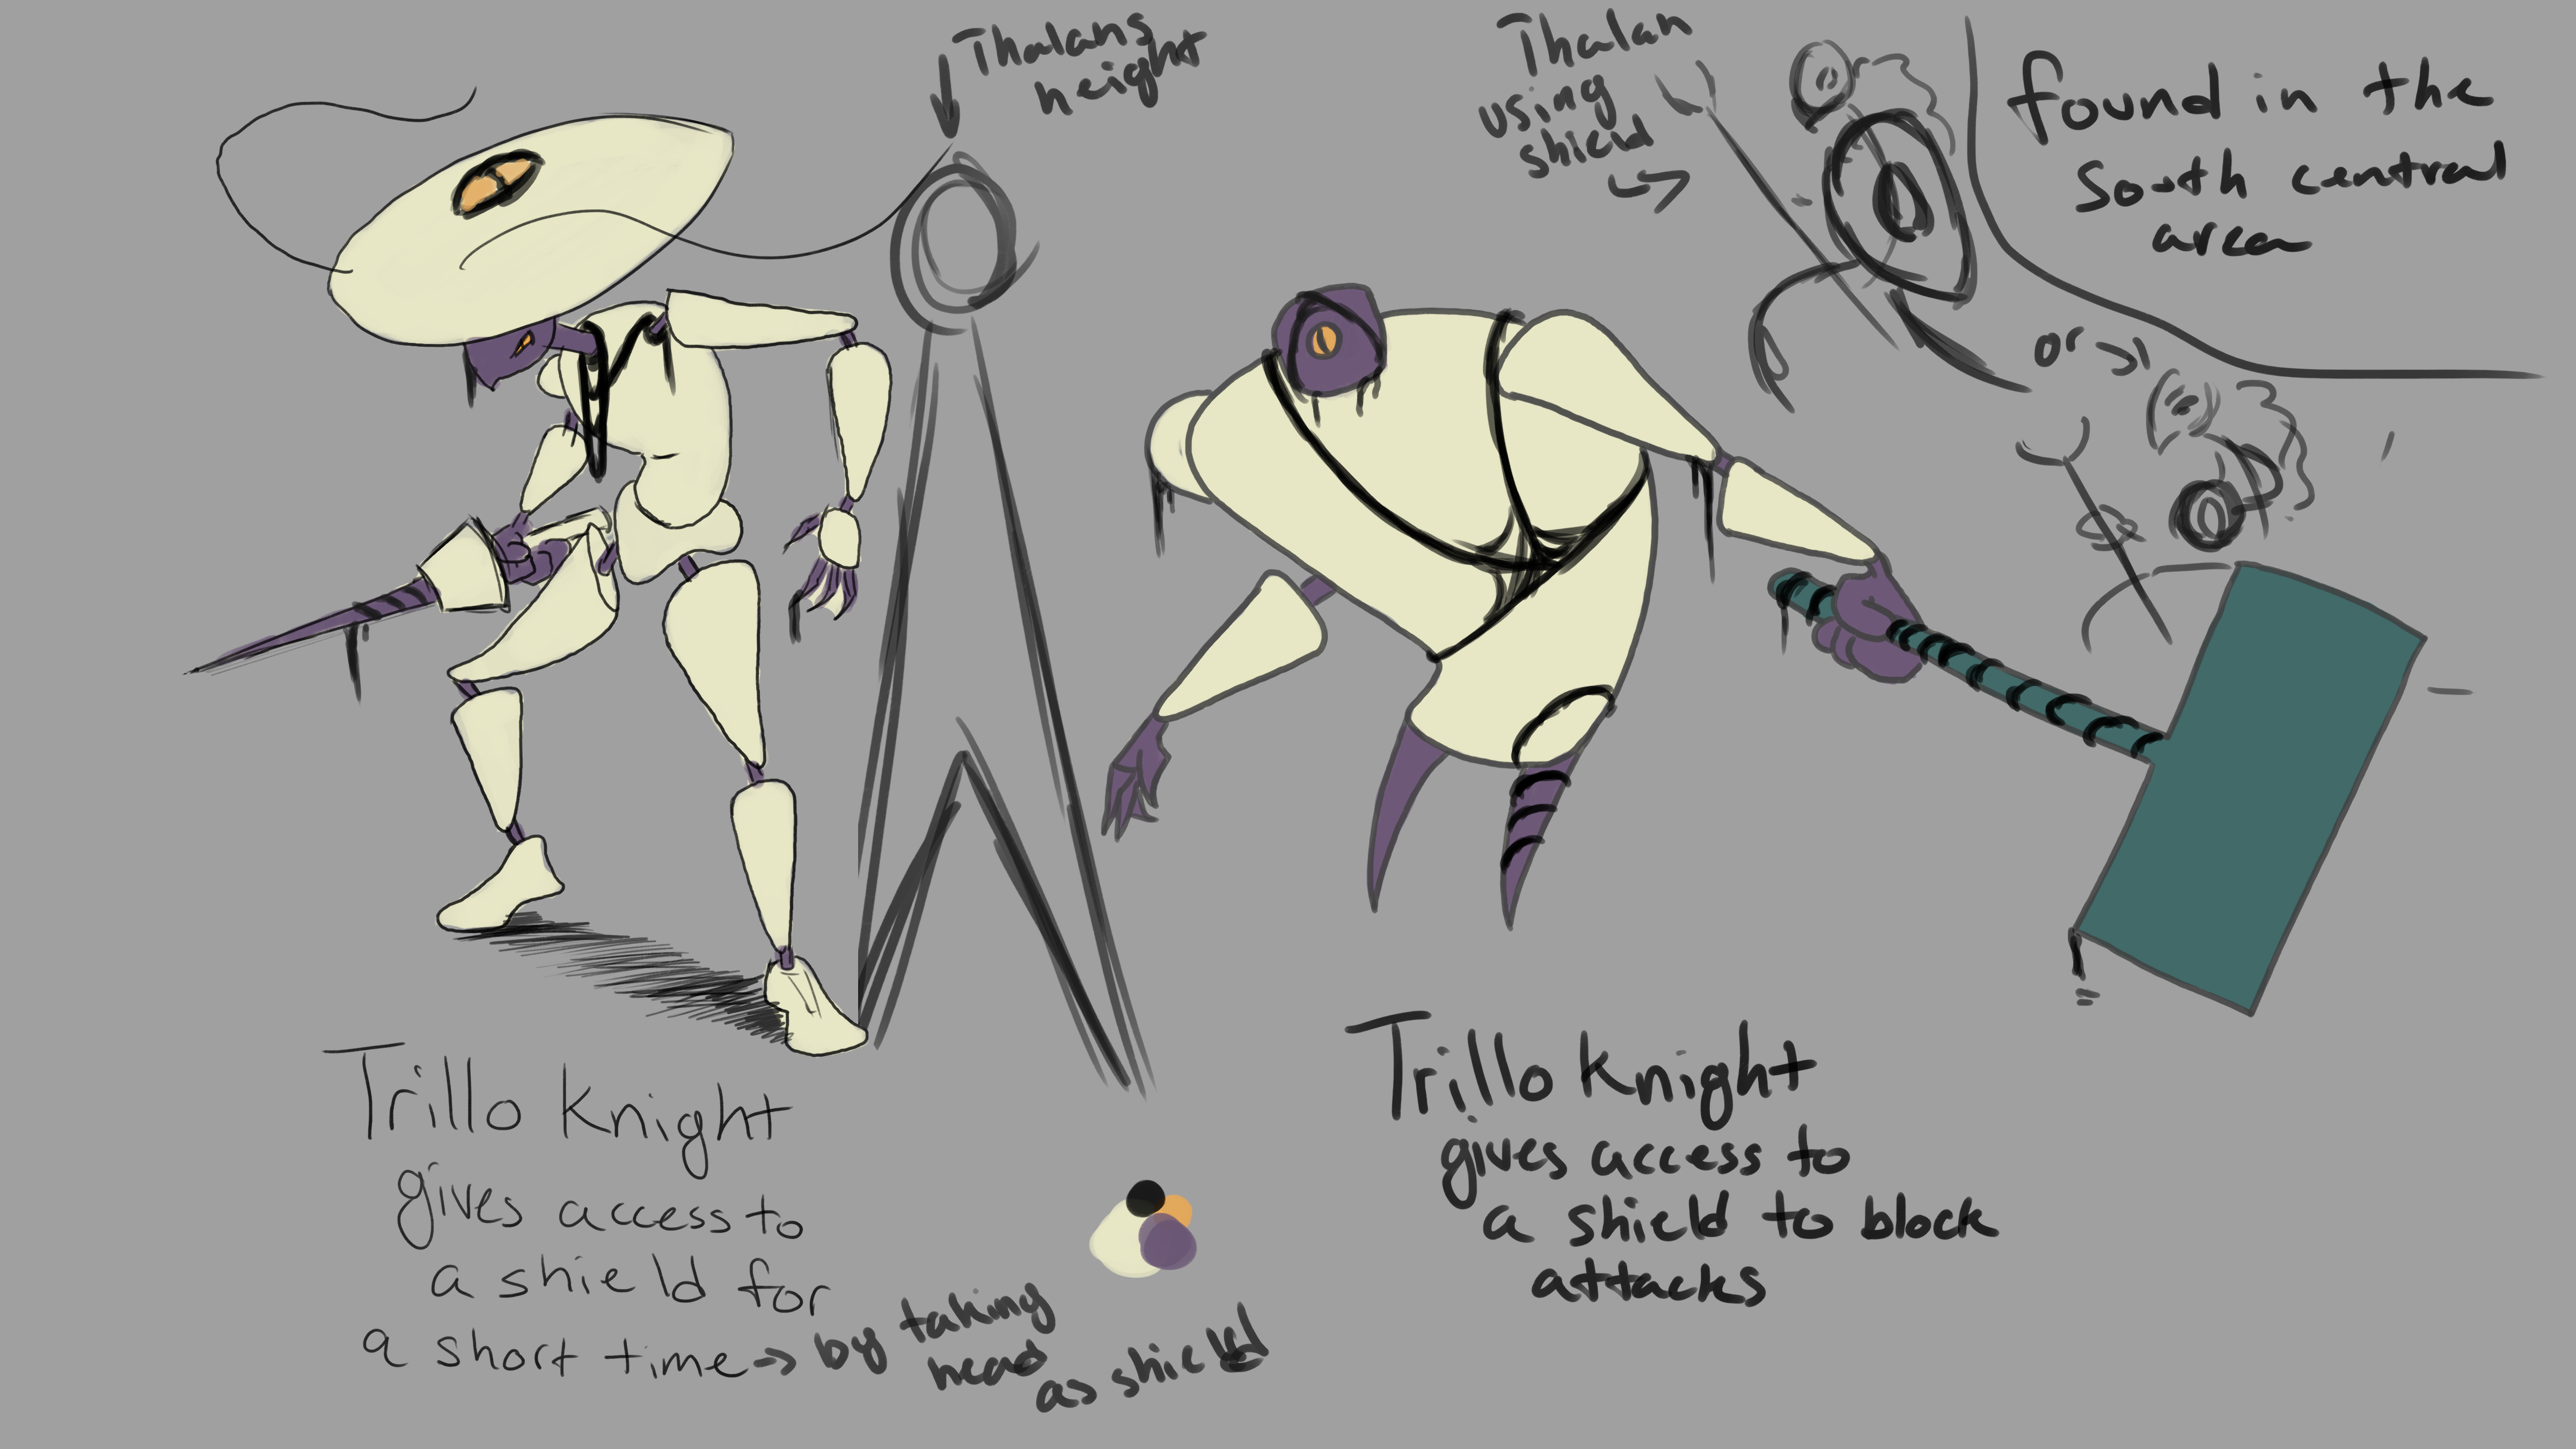 Thalans
height
Thalan
using
shield
found in the
South central
area
or
Trillo Knight
gives access to
a shield for
a short time → by taking
head
as shield
Trillo Knight
gives access to
a shield to block
attacks